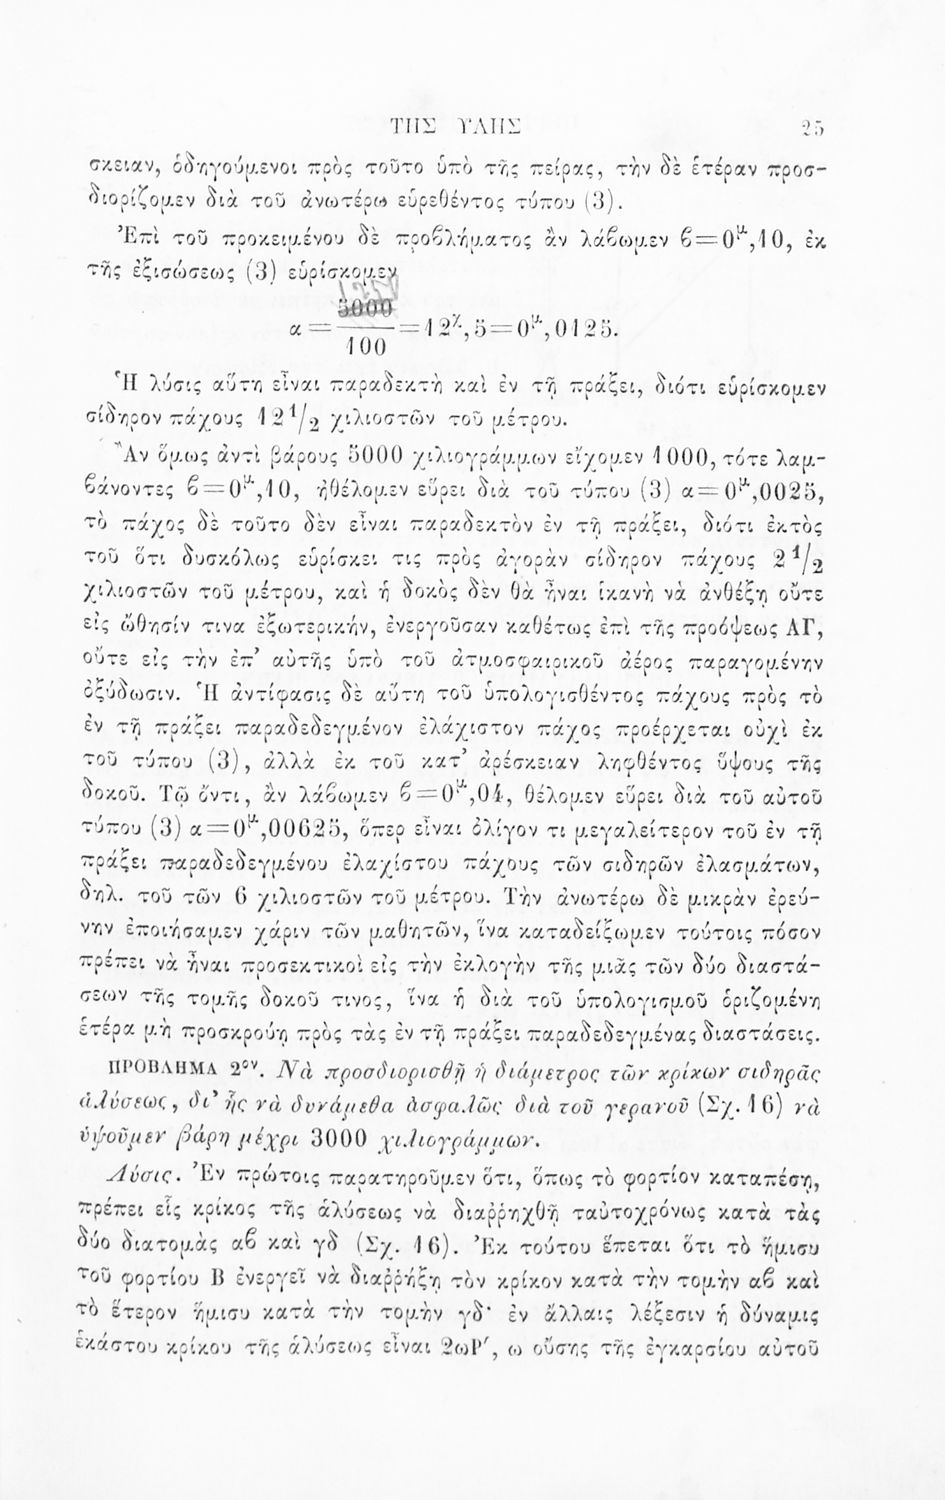 ΤΗΣ ΥΛΗΣ 25
σκειαν, ὁδηγούμενοι πρὸς τοῦτο ὑπὸ τῆς πείρας, τὴν δὲ ἑτέραν προσ-
διορίζομεν διὰ τοῦ ἀνωτέρω εὑρεθέντος τύπου (3).
Ἐπὶ τοῦ προκειμένου δὲ προϐλήματος ἂν λάϐωμεν ϐ=0μ,10, ἐκ
τῆς ἐξισώσεως (3) εὑρίσκομεν
5000
α = ——— =12χ,5=0μ,0125.
100
Ἡ λύσις αὕτη εἶναι παραδεκτὴ καὶ ἐν τῇ πράξει, διότι εὑρίσκομεν
σίδηρον πάχους 12 1/2 χιλιοστῶν τοῦ μέτρου.
Ἂν ὅμως ἀντὶ βάρους 5000 χιλιογράμμων εἴχομεν 1000, τότε λαμ-
ϐάνοντες ϐ=0μ,10, ἠθέλομεν εὕρει διὰ τοῦ τύπου (3) α=0μ,0025,
τὸ πάχος δὲ τοῦτο δὲν εἶναι παραδεκτὸν ἐν τῇ πράξει, διότι ἐκτὸς
τοῦ ὅτι δυσκόλως εὑρίσκει τις πρὸς ἀγορὰν σίδηρον πάχους 2 1/2
χιλιοστῶν τοῦ μέτρου, καὶ ἡ δοκὸς δὲν θὰ ἦναι ἱκανὴ νὰ ἀνθέξῃ οὔτε
εἰς ὤθησίν τινα ἐξωτερικήν, ἐνεργοῦσαν καθέτως ἐπὶ τῆς προόψεως ΑΓ,
οὔτε εἰς τὴν ἐπ’ αὐτῆς ὑπὸ τοῦ ἀτμοσφαιρικοῦ ἀέρος παραγομένην
ὀξύδωσιν. Ἡ ἀντίφασις δὲ αὕτη τοῦ ὑπολογισθέντος πάχους πρὸς τὸ
ἐν τῇ πράξει παραδεδεγμένον ἐλάχιστον πάχος προέρχεται οὐχὶ ἐκ
τοῦ τύπου (3), ἀλλὰ ἐκ τοῦ κατ’ ἀρέσκειαν ληφθέντος ὕψους τῆς
δοκοῦ. Τῷ ὄντι, ἂν λάϐωμεν ϐ=0μ,04, θέλομεν εὕρει διὰ τοῦ αὐτοῦ
τύπου (3) α=0μ,00625, ὅπερ εἶναι ὀλίγον τι μεγαλείτερον τοῦ ἐν τῇ
πράξει παραδεδεγμένου ἐλαχίστου πάχους τῶν σιδηρῶν ἐλασμάτων,
δηλ. τοῦ τῶν 6 χιλιοστῶν τοῦ μέτρου. Τὴν ἀνωτέρω δὲ μικρὰν ἐρεύ-
νην ἐποιήσαμεν χάριν τῶν μαθητῶν, ἵνα καταδείξωμεν τούτοις πόσον
πρέπει νὰ ἦναι προσεκτικοὶ εἰς τὴν ἐκλογὴν τῆς μιᾶς τῶν δύο διαστά-
σεων τῆς τομῆς δοκοῦ τινος, ἵνα ἡ διὰ τοῦ ὑπολογισμοῦ ὁριζομένη
ἑτέρα μὴ προσκρούῃ πρὸς τὰς ἐν τῇ πράξει παραδεδεγμένας διαστάσεις.
ΠΡΟΒΛΗΜΑ 2ον. Νὰ προσδιορισθῇ ἡ διάμετρος τῶν κρίκων σιδηρᾶς
ἁλύσεως, δι’ ἧς νὰ δυνάμεθα ἀσφαλῶς διὰ τοῦ γερανοῦ (Σχ. 16) νὰ
ὑψοῦμεν βάρη μέχρι 3000 χιλιογράμμων.
Λύσις. Ἐν πρώτοις παρατηροῦμεν ὅτι, ὅπως τὸ φορτίον καταπέσῃ,
πρέπει εἷς κρίκος τῆς ἁλύσεως νὰ διαῤῥηχθῇ ταὐτοχρόνως κατὰ τὰς
δύο διατομὰς αϐ καὶ γδ (Σχ. 16). Ἐκ τούτου ἕπεται ὅτι τὸ ἥμισυ
τοῦ φορτίου Β ἐνεργεῖ νὰ διαῤῥήξῃ τὸν κρίκον κατὰ τὴν τομὴν αϐ καὶ
τὸ ἕτερον ἥμισυ κατὰ τὴν τομὴν γδ· ἐν ἄλλαις λέξεσιν ἡ δύναμις
ἑκάστου κρίκου τῆς ἁλύσεως εἶναι 2ωΡ′, ω οὔσης τῆς ἐγκαρσίου αὐτοῦ